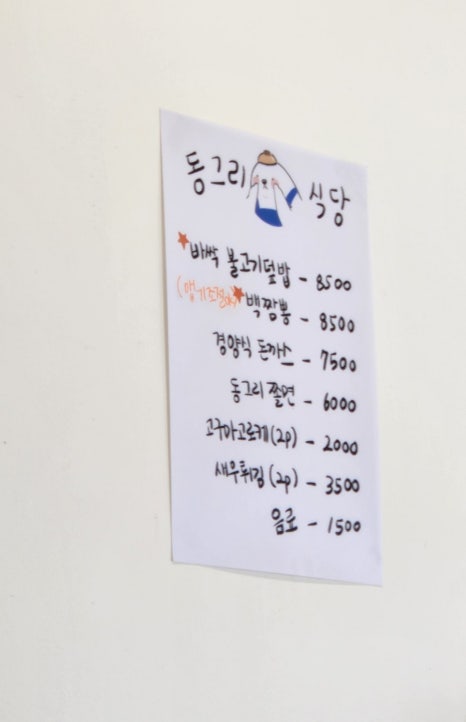 동그리 식당
★바싹 불고기덮밥 - 8500
(맵기조절ok)★백짬뽕 - 8500
경양식 돈까스 - 7500
동그리 쫄면 - 6000
고구마고로케(2p) - 2000
새우튀김(2p) - 3500
음료 - 1500